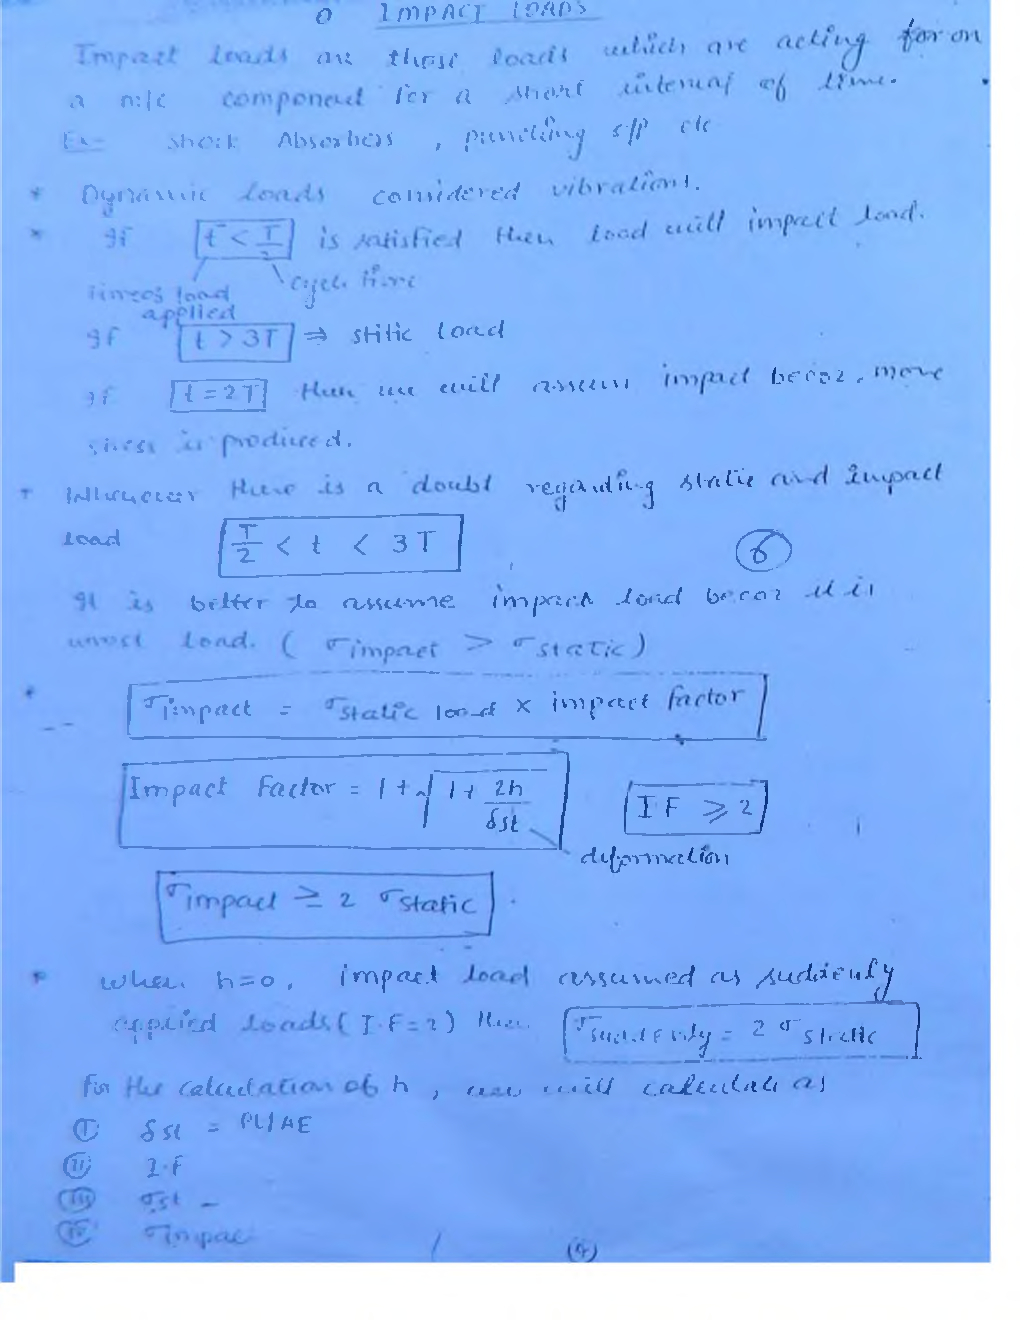 0 IMPACT LOADS
Impact loads are those loads which are acting for on
a m/c component for a short interval of time.
Ex- shock Absorbers , punching opr etc
* Dynamic loads considered vibrations.
* If t < T/2 is satisfied then load will impact load.
times load cycle time
applied
If t > 3T ⇒ stitic load
If t = 2T then we will assum impact becoz. more
stress is produced.
* Whenever there is a doubt regarding static and Impact
load T/2 < t < 3T 6
It is better to assume impact load becoz it is
worst load. ( σimpact > σstatic )
* σimpact = σstatic load x impact factor
Impact Factor = 1 + √1 + 2h/δst I F ≥ 2
deformation
σimpact ≥ 2 σstatic .
* when h=0 , impact load assumed as suddenly
applied loads ( I.F = 2 ) then σsuddenly = 2 σstatic
For the calculation of h , we will calculate as
(I) δst = PL/AE
(II) I.F
(III) σst -
(IV) σimpac
(4)